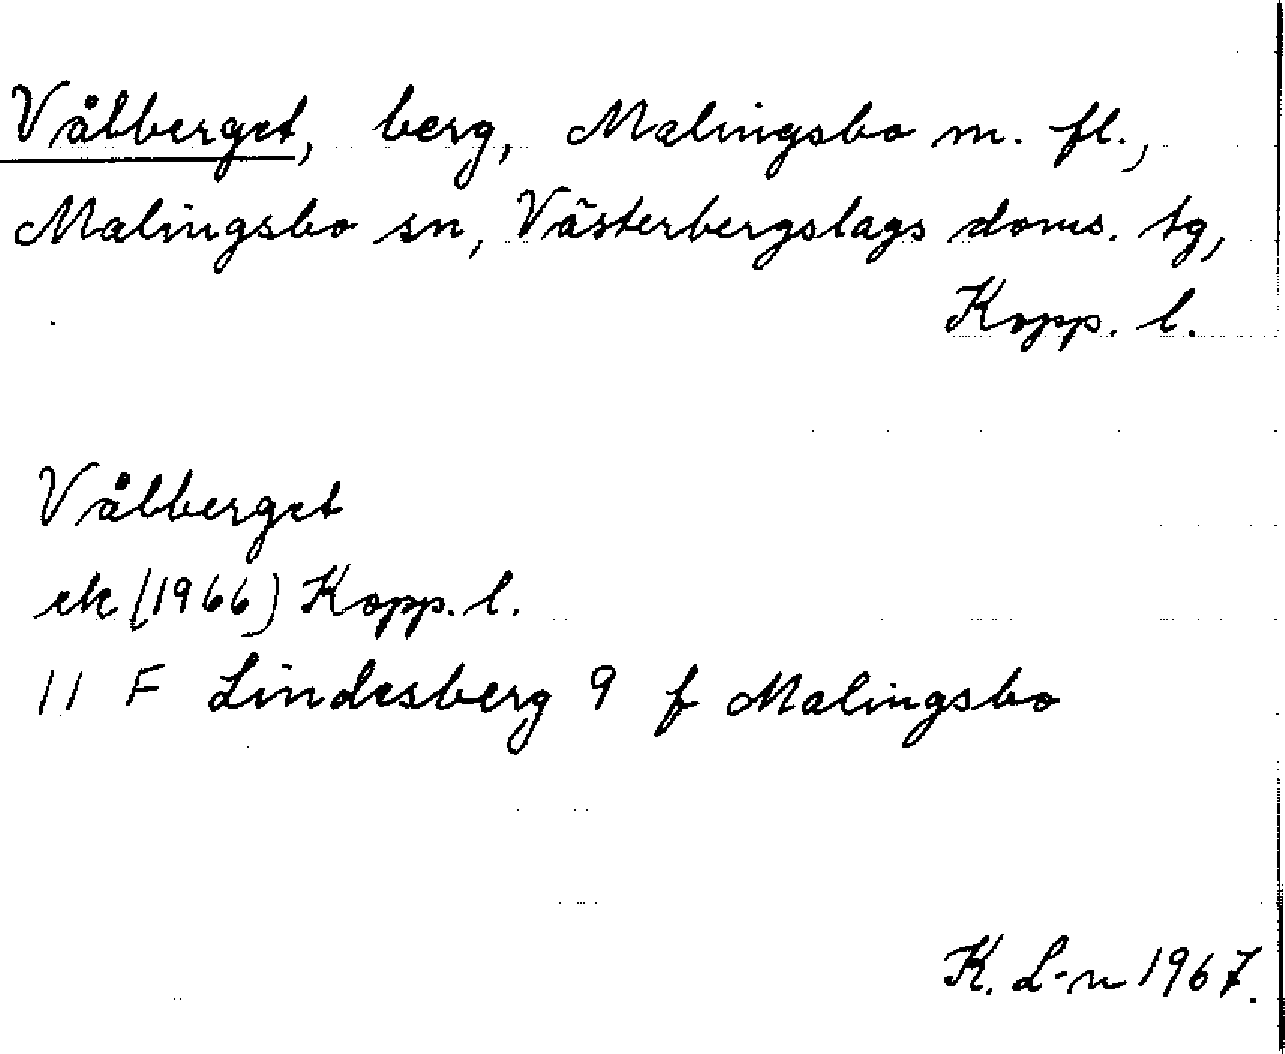 Vålberget, berg, Malingsbo m. fl.,
Malingsbo sn, Västerbergslags doms. tg,
Kopp. l.
Vålberget
ek (1966) Kopp. l.
11 F Lindesberg 9 f Malingsbo
K. L-n 1967.